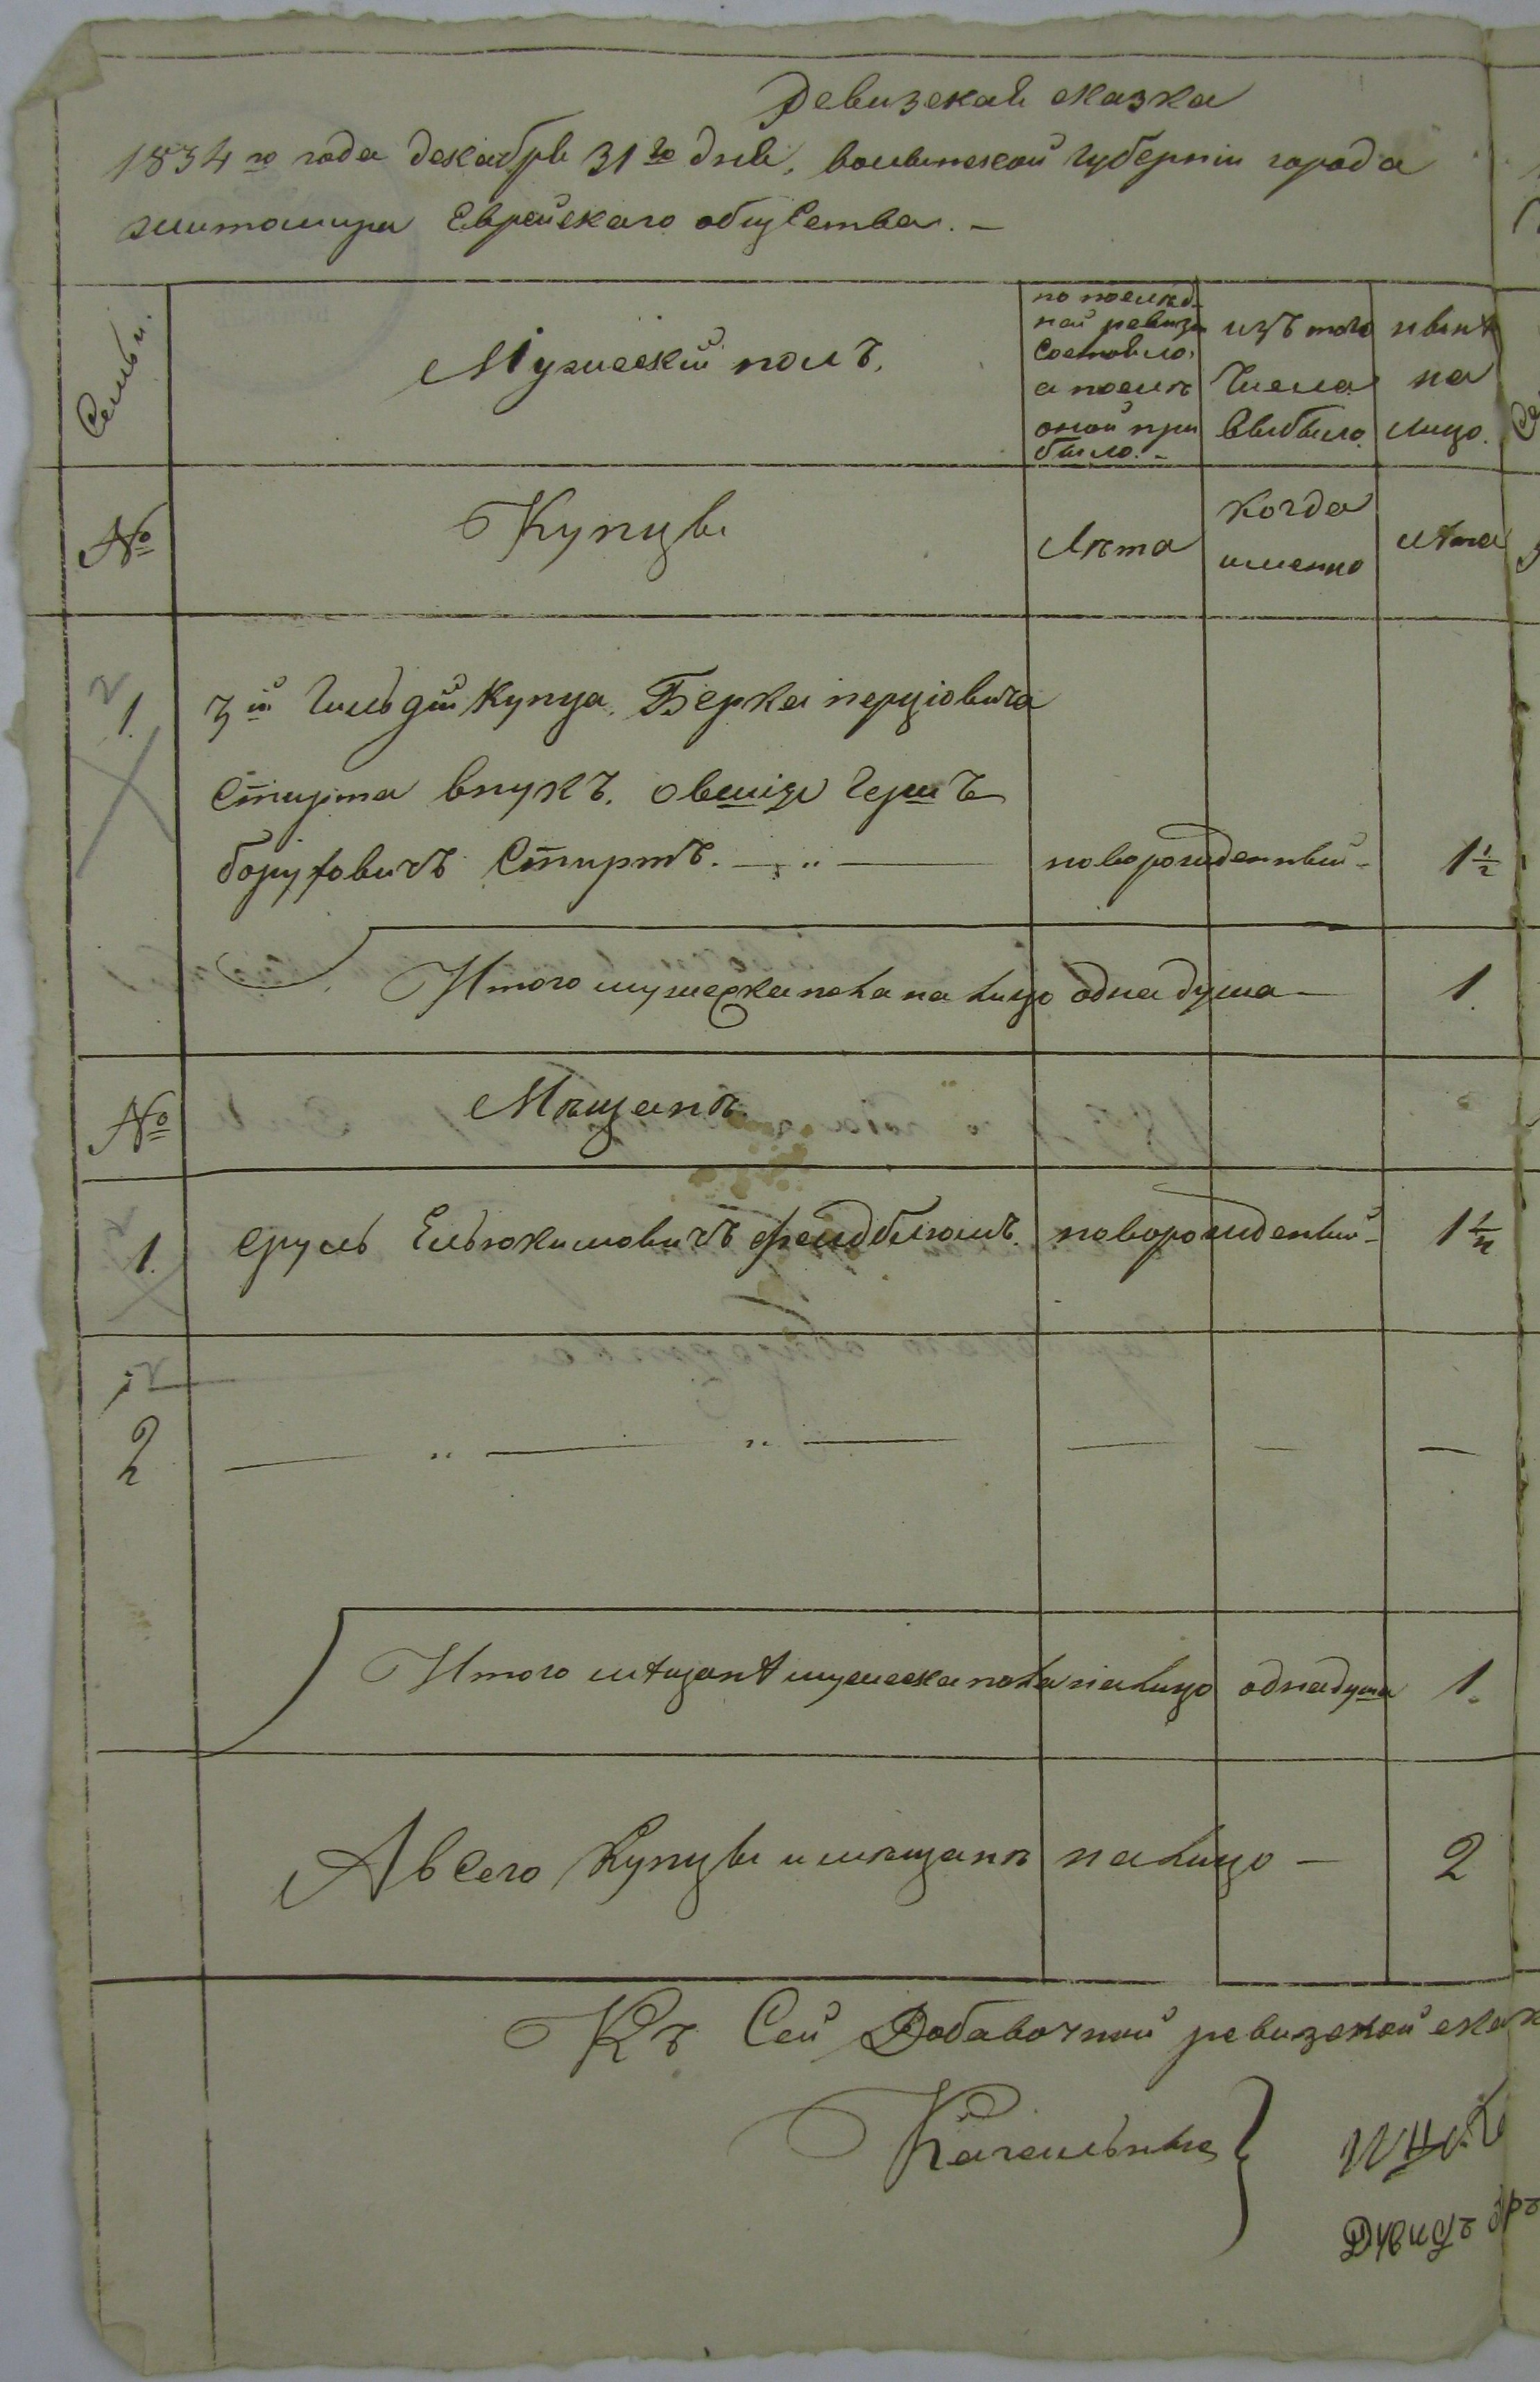 Ревизская сказка
1834го года декабря 31го дня, волынской губернiи города
житомира Еврейскаго общества. —
Семьи.
Мужескiй полъ.
по послѣд-
ней ревизи
Состояло,
а послѣ
оной при
было. -
изъ того
Числа
выбыло.
нынѣ
на
лицо.
№
Купцы
Лѣта
когда
именно
лѣта
1.
3й Гильдiи Купца. Берка перцiовича
Спирта внукъ. овшiя Гершъ
боруховичъ Спиртъ. — „ —
новорожденный -
1 1/2
Итого мужеска пола на лицо одна душа —
1.
№
Мѣщанѣ.
1.
Срулъ Ельюкимовичъ фельдблюмъ.
новорожденный -
1 1/2
2
— „ — „ —
—
—
—
Итого мѣщанѣ мужеска пола на лицо одна душа
1.
А всего Купцы и мѣщанѣ на лицо —
2
Къ Сей Добавочной ревизской
Кагальные }